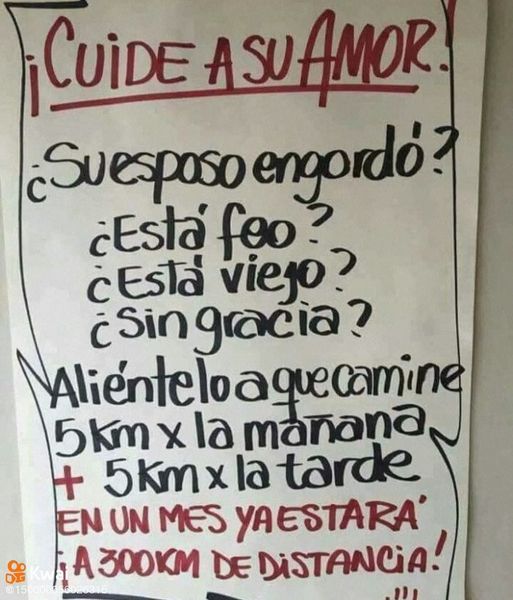 ¡CUIDE A SU AMOR!
¿Su esposo engordó?
¿Está feo?
¿Está viejo?
¿Sin gracia?
Aliéntelo a que camine
5Km x la mañana
+ 5Km x la tarde
EN UN MES YA ESTARÁ
¡A 300KM DE DISTANCIA!
Kwai